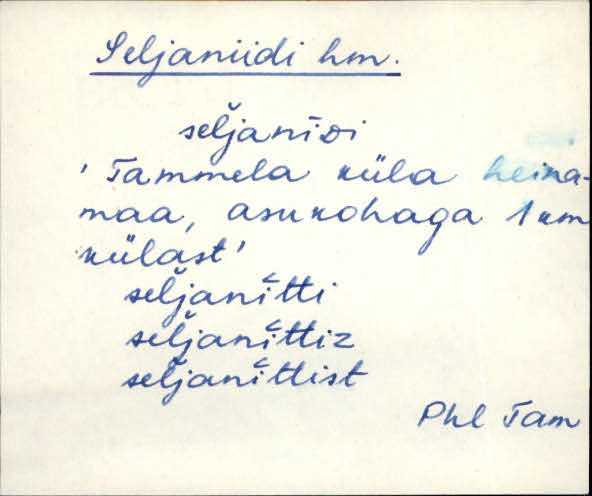 Seljaniidi hm.
seĺjanīᴅi
' Tammela küla heina-
maa, asukohaga 1 km
külast'
seĺjanītti
seĺjanīttiz
seĺjanīttist
Phl Tam